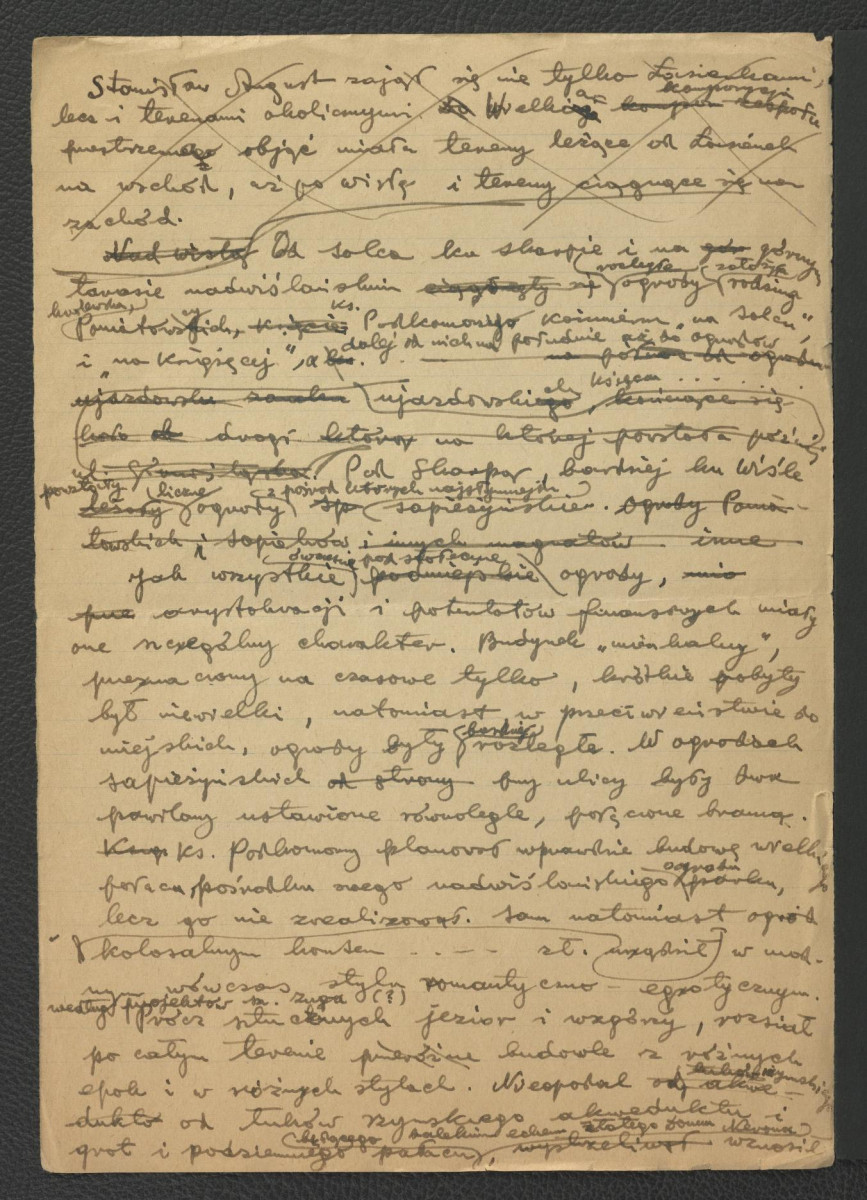 Stanisław August zajął się nie tylko Łazienkami,
lecz i terenami okolicznymi. Wielka kompozycja
przestrzenna objąć miała tereny leżące od Łazienek
na wschód, aż po Wisłę i tereny ciągnące się na
zachód.
Nad Wisłą Od Solca ku skarpie i na górnym
rozległe założyła
tarasie nadwiślańskim ogrody rodzina
królewska, ks.
Poniatowskich, Podkomorzego Kazimierza „na Solcu",
dalej od nich na południe aż do ogrodów
i „na Książęcej", a
ujazdowskich, Książęca . . . . . . .
drogi na której powstała później
ul. Pod Skarpą, bardziej ku Wiśle
powstały liczne z pośród których najsłynniejsze
leżały ogrody sapieżyńskie. Ogrody Ponia-
towskich i Sapiehów i innych magnatów inne
ówczesne podstołeczne
Jak wszystkie podmiejskie ogrody,
arystokracji i potentatów finansowych miały
one szczególny charakter. Budynek „mieszkalny",
przeznaczony na czasowe tylko, krótkie pobyty
był niewielki, natomiast w przeciwieństwie do
bardziej
miejskich, ogrody były rozległe. W ogrodach
sapieżyńskich od strony przy ulicy były dwa
pawilony ustawione równolegle, połączone bramą.
ks. Podkomorzy planował wprawdzie budowę wielkiego
ogrodu
pałacu, pośrodku swego nadwiślańskiego parku,
lecz go nie zrealizował. Sam natomiast ogród
kolosalnym kosztem . . - - zł. urządził w mod-
nym wówczas stylu romantyczno-egzotycznym.
według projektów Sz. Zuga (?)
Prócz sztucznych jezior i wzgórzy, rozsiał
po całym terenie przeróżne budowle z różnych
epok i w różnych stylach. Nieopodal od akwe-
duktu od łuków rzymskiego akweduktu i
będącego dalekim echem złotego Domu Nerona
grot i podziemnego pałacu, wystrzeliwał wznosił